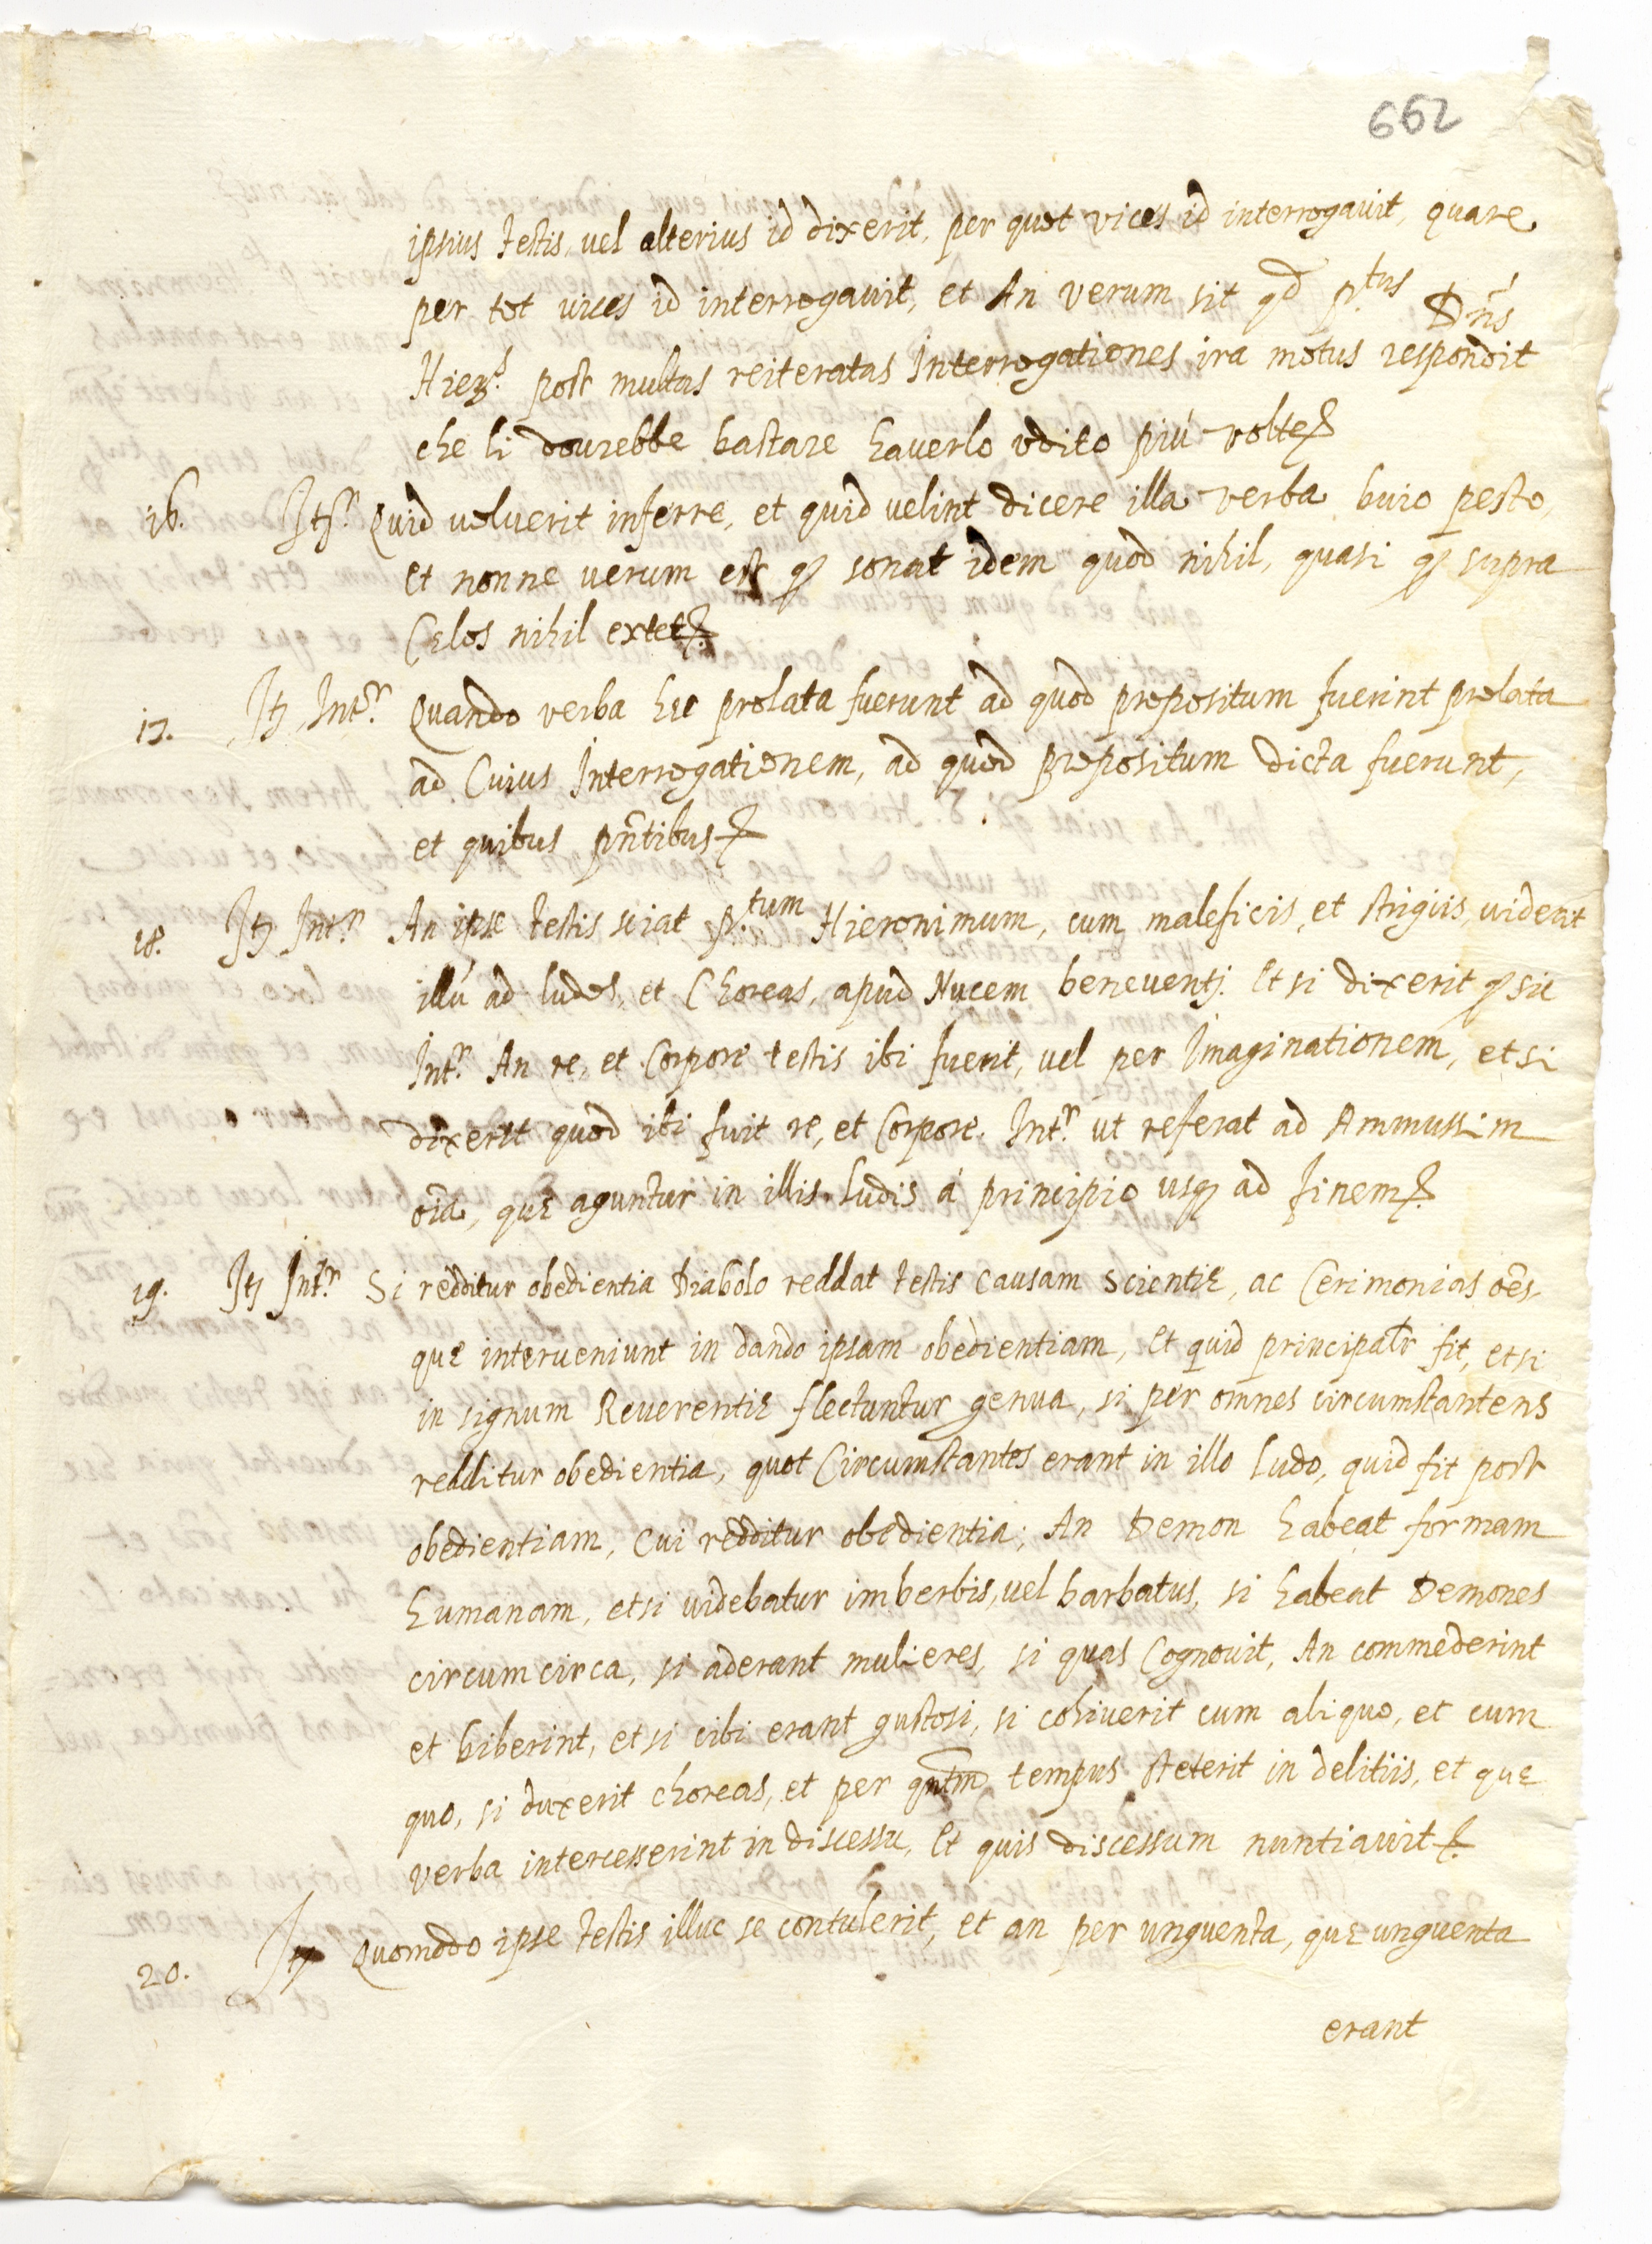 662
ipsius testis, vel alterius id dixerit, per quot vices id interrogavit, quare
per tot vices id interrogavit, et An verum sit qd p.tus Dñs
Hier.s post multas reiteratas Interrogationes ira motus respondit
che li dovrebbe bastare haverlo udito più volte
16. It.r Quid voluerit inferre, et quid velint dicere illa verba buio pesto,
et nonne verum est q sonat idem quod nihil, quasi q supra
Celos nihil extet
17. It Int.r Quando verba hec prolata fuerunt ad quod propositum fuerint prolata
ad Cuius Interrogationem, ad quod propositum dicta fuerunt,
et quibus pñtibus
18. It Int.r An ipse testis sciat p.tum Hieronimum, cum maleficis, et strigiis, viderit
illũ ad ludos, et Choreas, apud Nucem beneventj. Et si dixerit q sic
Int.r An re, et Corpore testis ibi fuerit, vel per Imaginationem, et si
dixerit quod ibi fuit re, et Corpore. Int.r ut referat ad Ammussim
oĩa, que aguntur in illis Ludis à principio usq ad finem
19. It Int.r Si redditur obedientia Diabolo reddat testis causam scientie, ac Cerimonias oẽs
que interveniunt in dando ipsam obedientiam, Et quid principalr fit, et si
in signum Reverentie flectuntur genua, si per omnes circumstantens
redditur obedientia, quot Circumstantes erant in illo Ludo, quid fit post
obedientiam, Cui redditur obedientia; An Demon habeat formam
humanam, et si videbatur imberbis, vel barbatus, si habeat Demones
circum circa, si aderant mulieres, si quas Cognovit, An commederint
et biberint, et si cibi erant gustosi, si cohiverit cum aliquo, et cum
quo, si duxerit choreas, et per qntm tempus steterit in delitiis, et que
verba intercesserint in discessu, Et quis discessum nuntiavit
20. It Quomodo ipse testis illuc se contulerit, et an per unguenta, que unguenta
erant